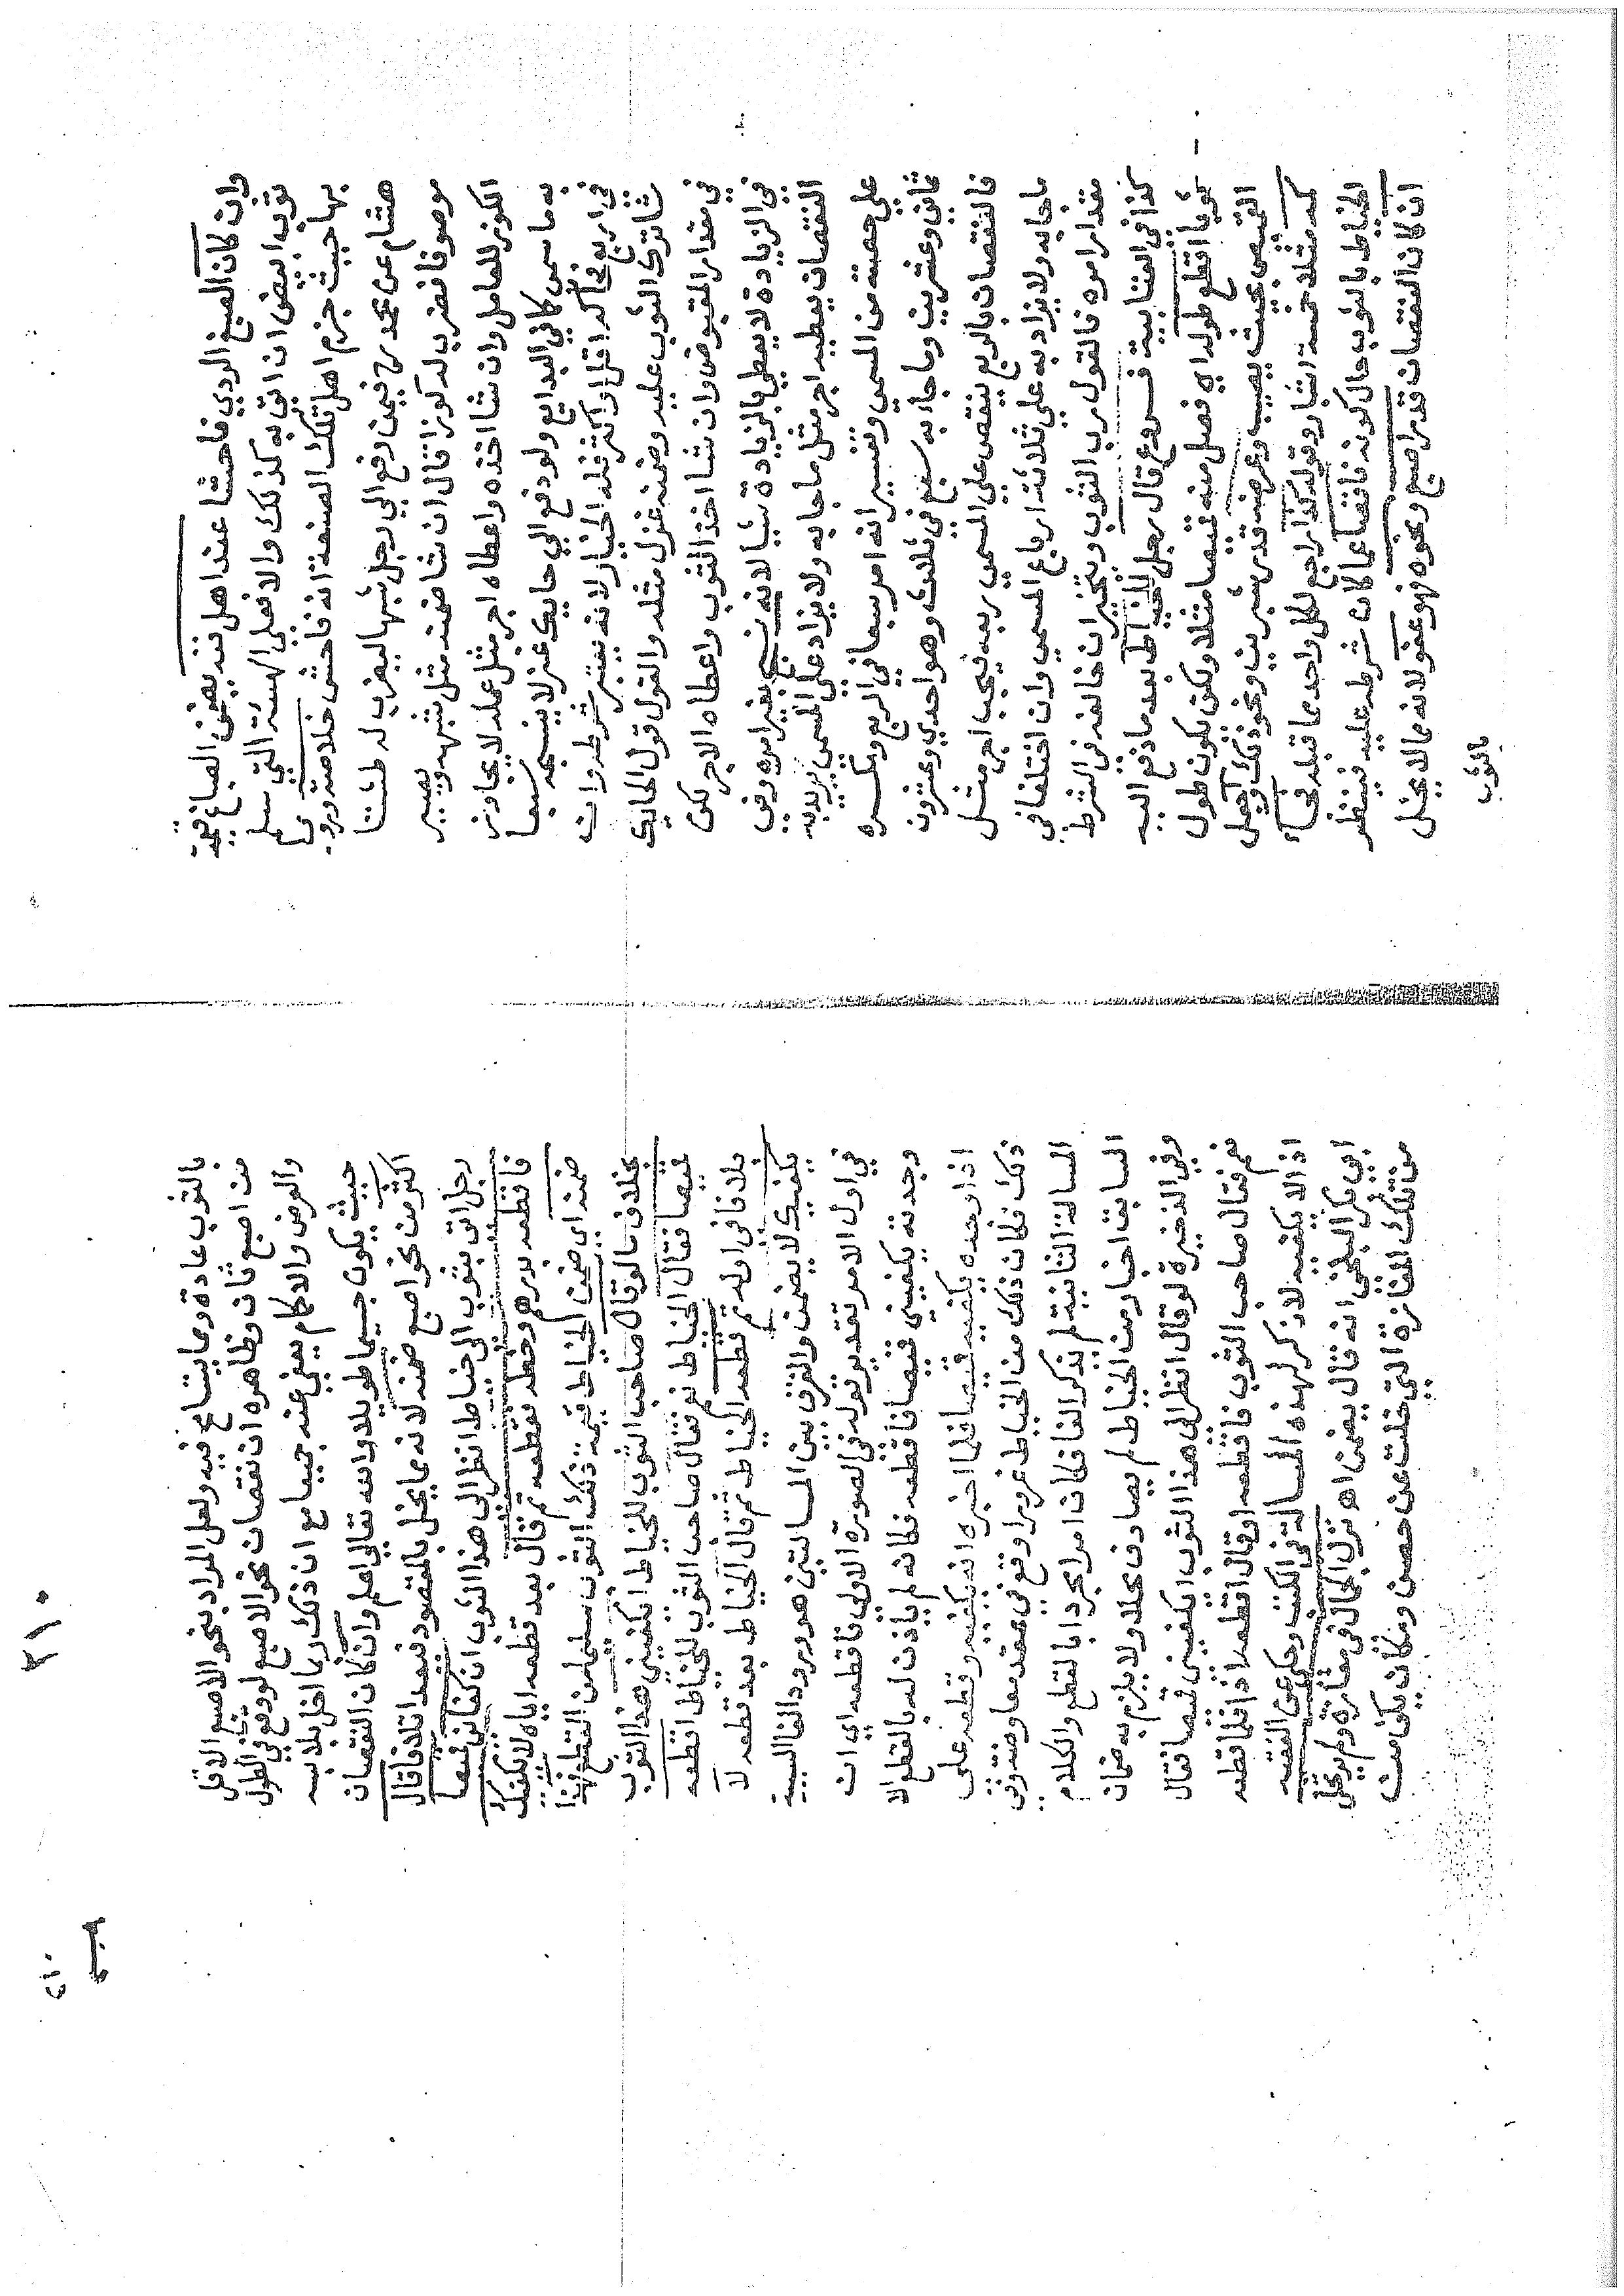 وان كان الصبغ الردي فاحشا عند اهل فنه يضمن الصباغ قيمة
ثوب ابيض ان اتى به كذلك والا فعلى الهيئة التي سلم
بها حيث جزم اهل تلك الصنعة انه فاحش خلاصة وروى
هشام عن محمد رح فيمن دفع الى رجل شبها ليضرب له طشتا
موصوفا فضرب له كوزا قال ان شا ضمنه مثل شبهه ويصير
الكوز للعامل وان شا اخذه واعطاه اجر مثل عمله لا يجاوز
به ما سمى كما في البدايع ولو دفع الى حايك غزلا لينسجه سبعا
في اربع فحاكه اقل او اكثر فله الخيار لانه يعتبر شرطه وان
شا ترك الثوب عليه وضمنه غزل مثله والقول قول الحايك
في مقدار المقبوض وان شا اخذ الثوب واعطاه الاجر لكن
في الزيادة لا يعطي بالزيادة شيا لانه نسج بغير امره وفي
النقصان يعطيه اجر مثل ما جا به ولا يزاد على المسمى يريد به
على حصته من المسمى وتفسيره انه امر سبعا في اربع وتكسره
ثمانية وعشرين وما جا به سبع في ثلاث وهو احدي وعشرون
فالنقصان بالربع ينقص على المسمى ربعه فيجب اجر مثل
ما جا به ولا يزاد به على ثلاثة ارباع المسمى وان اختلفا في
مقدار امره فالقول رب الثوب ويتخير ان خالفه في الشرط
كذا في العتابية فروع قال رجل للخياط بعد ما دفع اليه
ثوبا اقطع طوله اي فصل منه قميصا مثلا ولكن يكون طول
القميص بحيث يصيب وعرضه قدر شبرين ونحو ذلك واجعل
كمه مثلا خمسة اشبار وقوله كذا راجع لكل واحد مما قبله فجا
الخياط بالثوب حال كونه ناقصا عما كان شرطه عليه فينظر
ان كان النقصان قدر اصبع ونحوه فهو عفو لانه مما لا يخل
بالثوب
بالثوب عادة ومما يتسامح فيه ولعل المراد بنحو الاصبع الاقل
من اصبع ثان وظاهره ان نقصان نحو الاصبع لو وقع في الطول
والعرض والاكمام يعفى عنه جميعا مع ان ذلك ربما اخل بلابسه
حيث يكون جسيما طويلا والله تعالى اعلم وان كان النقصان
اكثر من نحو اصبع ضمنه لانه مما يخل بالمقصود فيعد اتلافا قال
رجل اتى بثوب الى خياط انظر الى هذا الثوب ان كفاني قميصا
فاقطعه بدرهم وخطه فقطعه ثم قال بعد قطعه اياه لا يكفيك
ضمنه اي ضمن الخياط قيمة ذلك الثوب سليما من القطع
بخلاف ما لو قال صاحب الثوب للخياط ايكفيني هذا الثوب
قميصا فقال الخياط نعم فقال صاحب الثوب للخياط اقطعه
بلا فا في اوله ثم قطعه الخياط ثم قال الخياط بعد قطعه لا
يكفيك لا يضمن والفرق بين المسالتين هو ورود الفا السببية
في اول الامر تقدير قوله في الصورة الاولى فاقطعه اي ان
وجدته يكفيني قميصا فاقطعه فكانه لم ياذن له بالقطع الا
اذا وجده يكفيه قميصا فلما اخبره انه يكفيه وقطعه على
ذلك فكان ذلك من الخياط غرورا وقع في عقد معاوضة وفي
المسالة الثانية لم يذكر الفا فكان امرا مجردا بالقطع والكلام
السابق اخبار من الخياط لم يصادف محلا ولا يلزم به ضمان
وفي الذخيرة لو قال انظر الى هذا الثوب ايكفيني قميصا فقال
نعم فقال صاحب الثوب فاقطعه او قال اقطعه اذا فلما قطعه
اذا لا يكفيه لا ذكر لهذه المسالة في الكتب وحكى عن الفقيه
ابي بكر البلخي انه قال يضمن اه نزل الجمال في مفازة ولم يرتحل
من تلك المفازة التي خلت عن حصن ومكان يكن منت
٢١٠